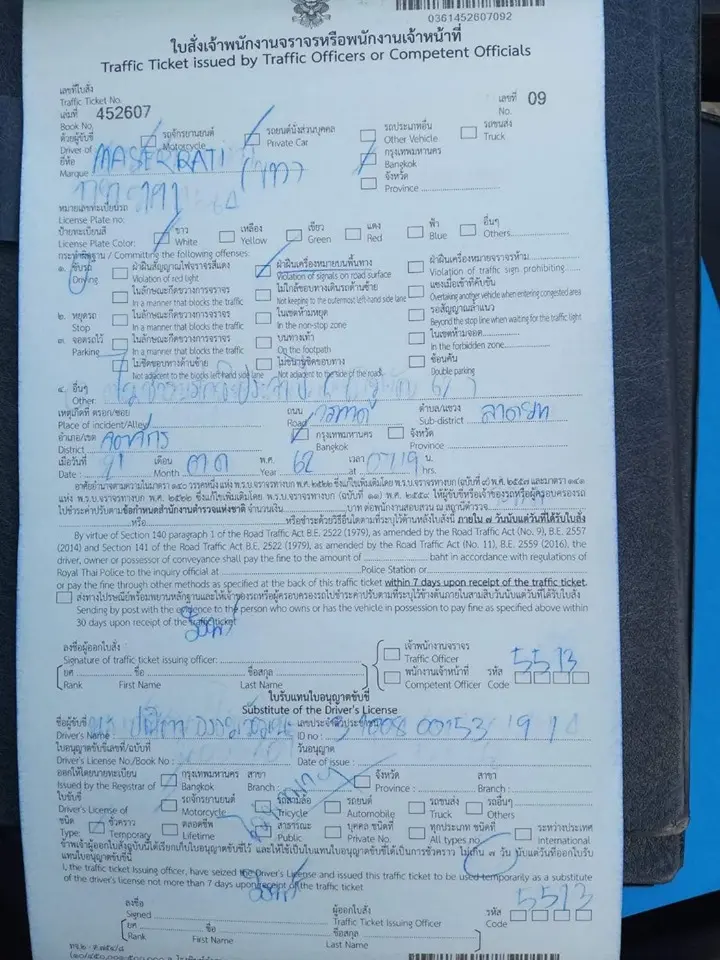 0361452607092
ใบสั่งเจ้าพนักงานจราจรหรือพนักงานเจ้าหน้าที่
Traffic Ticket issued by Traffic Officers or Competent Officials
เลขที่ใบสั่ง
Traffic Ticket No.
เล่มที่ 452607 เลขที่ 09
Book No. No.
ด้วยผู้ขับขี่ รถจักรยานยนต์ รถยนต์นั่งส่วนบุคคล รถประเภทอื่น รถขนส่ง
Driver of Motorcycle Private Car Other Vehicle Truck
ยี่ห้อ MASERRATI กรุงเทพมหานคร
Marque Bangkok
จังหวัด
Province
หมายเลขทะเบียนรถ
License Plate no:
ป้ายทะเบียนสี ขาว เหลือง เขียว แดง ฟ้า อื่นๆ
License Plate Color: White Yellow Green Red Blue Others
กระทำผิดฐาน / Committing the following offenses:
๑. ขับรถ ฝ่าฝืนสัญญาณไฟจราจรสีแดง ฝ่าฝืนเครื่องหมายบนพื้นทาง ฝ่าฝืนเครื่องหมายจราจรห้าม
Driving Violation of red light Violation of signals on road surface Violation of traffic sign prohibiting
ในลักษณะกีดขวางการจราจร ไม่ใกล้ขอบทางเดินรถด้านซ้าย แซงเมื่อเข้าที่คับขัน
In a manner that blocks the traffic Not keeping to the outermost-left-hand side lane Overtaking another vehicle when entering congested area
๒. หยุดรถ ในลักษณะกีดขวางการจราจร ในเขตห้ามหยุด รอสัญญาณล้ำแนว
Stop In a manner that blocks the traffic In the non-stop zone Beyond the stop line when waiting for the traffic light
๓. จอดรถไว้ ในลักษณะกีดขวางการจราจร บนทางเท้า ในเขตห้ามจอด
Parking In a manner that blocks the traffic On the footpath In the forbidden zone
ไม่ชิดขอบทางด้านซ้าย ไม่ขนานชิดขอบทาง ซ้อนคัน
Not adjacent to the blocks left-hand side lane Not adjacent to the side of the road Double parking
๔. อื่นๆ
Other
เหตุเกิดที่ ตรอก/ซอย ถนน ตำบล/แขวง ลาดยาว
Place of incident/Alley Road Sub-district
อำเภอ/เขต จตุจักร กรุงเทพมหานคร จังหวัด
District Bangkok Province
เมื่อวันที่ เดือน พ.ศ. 62 เวลา น.
Date : Month Year at hrs.
อาศัยอำนาจตามความในมาตรา ๑๔๐ วรรคหนึ่ง แห่ง พ.ร.บ.จราจรทางบก พ.ศ. ๒๕๒๒ ซึ่งแก้ไขเพิ่มเติมโดย พ.ร.บ.จราจรทางบก (ฉบับที่ ๙) พ.ศ. ๒๕๕๗ และมาตรา ๑๔๑
แห่ง พ.ร.บ.จราจรทางบก พ.ศ. ๒๕๒๒ ซึ่งแก้ไขเพิ่มเติมโดย พ.ร.บ.จราจรทางบก (ฉบับที่ ๑๑) พ.ศ. ๒๕๕๙ ให้ผู้ขับขี่หรือเจ้าของรถหรือผู้ครอบครองรถ
ไปชำระค่าปรับตามข้อกำหนดสำนักงานตำรวจแห่งชาติ จำนวนเงิน บาท ต่อพนักงานสอบสวน ณ สถานีตำรวจ
หรือ หรือชำระด้วยวิธีอื่นใดตามที่ระบุไว้ด้านหลังใบสั่งนี้ ภายใน ๗ วันนับแต่วันที่ได้รับใบสั่ง
By virtue of Section 140 paragraph 1 of the Road Traffic Act B.E. 2522 (1979), as amended by the Road Traffic Act (No. 9), B.E. 2557
(2014) and Section 141 of the Road Traffic Act B.E. 2522 (1979), as amended by the Road Traffic Act (No. 11), B.E. 2559 (2016), the
driver, owner or possessor of conveyance shall pay the fine to the amount of baht in accordance with regulations of
Royal Thai Police to the inquiry official at Police Station or
or pay the fine through other methods as specified at the back of this traffic ticket within 7 days upon receipt of the traffic ticket.
ส่งทางไปรษณีย์พร้อมพยานหลักฐานและให้เจ้าของรถหรือผู้ครอบครองรถไปชำระค่าปรับตามที่ระบุไว้ข้างต้นภายในสามสิบวันนับแต่วันที่ได้รับใบสั่ง
Sending by post with the evidence to the person who owns or has the vehicle in possession to pay fine as specified above within
30 days upon receipt of the traffic ticket
ลงชื่อผู้ออกใบสั่ง เจ้าพนักงานจราจร
Signature of traffic ticket issuing officer: Traffic Officer
ยศ ชื่อ ชื่อสกุล พนักงานเจ้าหน้าที่ รหัส 5513
Rank First Name Last Name Competent Officer Code
ใบรับแทนใบอนุญาตขับขี่
Substitute of the Driver's License
ชื่อผู้ขับขี่ เลขประจำตัวประชาชน
Driver's Name ID no :
ใบอนุญาตขับขี่เลขที่/ฉบับที่ วันอนุญาต
Driver's License No./Book No : Date of issue :
ออกให้โดยนายทะเบียน กรุงเทพมหานคร สาขา จังหวัด สาขา
Issued by the Registrar of Bangkok Branch : Province : Branch :
ใบขับขี่ รถจักรยานยนต์ รถสามล้อ รถยนต์ รถขนส่ง รถอื่นๆ
Driver's License of Motorcycle Tricycle Automobile Truck Others
ชนิด ชั่วคราว ตลอดชีพ สาธารณะ บุคคล ชนิดที่ ทุกประเภท ชนิดที่ ระหว่างประเทศ
Type: Temporary Lifetime Public Private No. All types no. International
ข้าพเจ้าผู้ออกใบสั่งฉบับนี้ได้เรียกเก็บใบอนุญาตขับขี่ไว้ และให้ใช้ใบสั่งนี้เป็นใบแทนใบอนุญาตขับขี่ได้เป็นการชั่วคราว ไม่เกิน ๗ วัน นับแต่วันที่ออกใบรับ
แทนใบอนุญาตขับขี่นี้
I, the traffic ticket Issuing Officer, have seized the Driver's License and issued this traffic ticket to be used temporarily as a substitute
of the driver's license not more than 7 days upon receipt of the traffic ticket
ลงชื่อ ผู้ออกใบสั่ง รหัส 5513
Signed Traffic Ticket Issuing Officer Code
ยศ ชื่อ ชื่อสกุล
Rank First Name Last Name